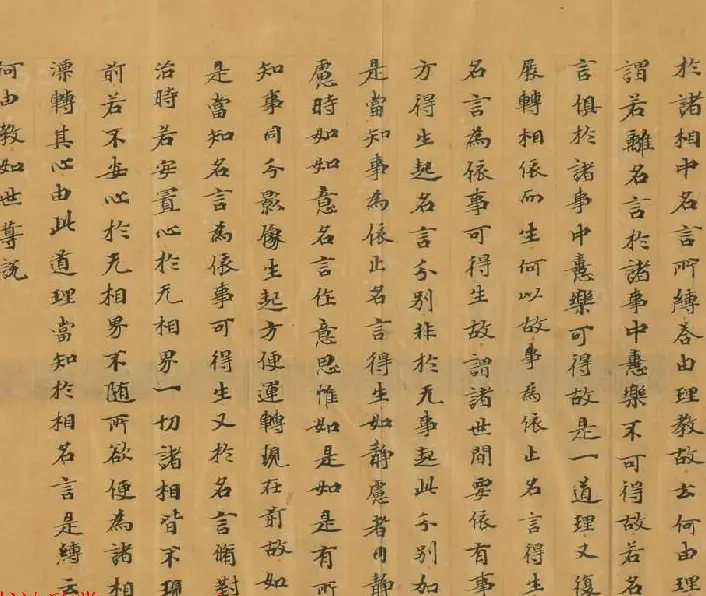 於諸相中名言所縛荅由理教故云何由理
謂若離名言於諸事中憙樂不可得故若名
言俱於諸事中憙樂可得故是一道理又復
展轉相依而生何以故事為依止名言得生
名言為依事可得生故謂諸世間要依有事
方得生起名言分別非於无事起此分別如
是當知事為依止名言得生如靜慮者由靜
慮時如如意名言作意思惟如是如是有所
知事同分影像生起方便運轉現在前故如
是當知名言為依事可得生又於名言俻對
治時若安置心於无相界一切諸相皆不現
前若不安心於无相界不随所欲便為諸相
漂轉其心由此道理當知於相名言是縛云
何由教如世尊說